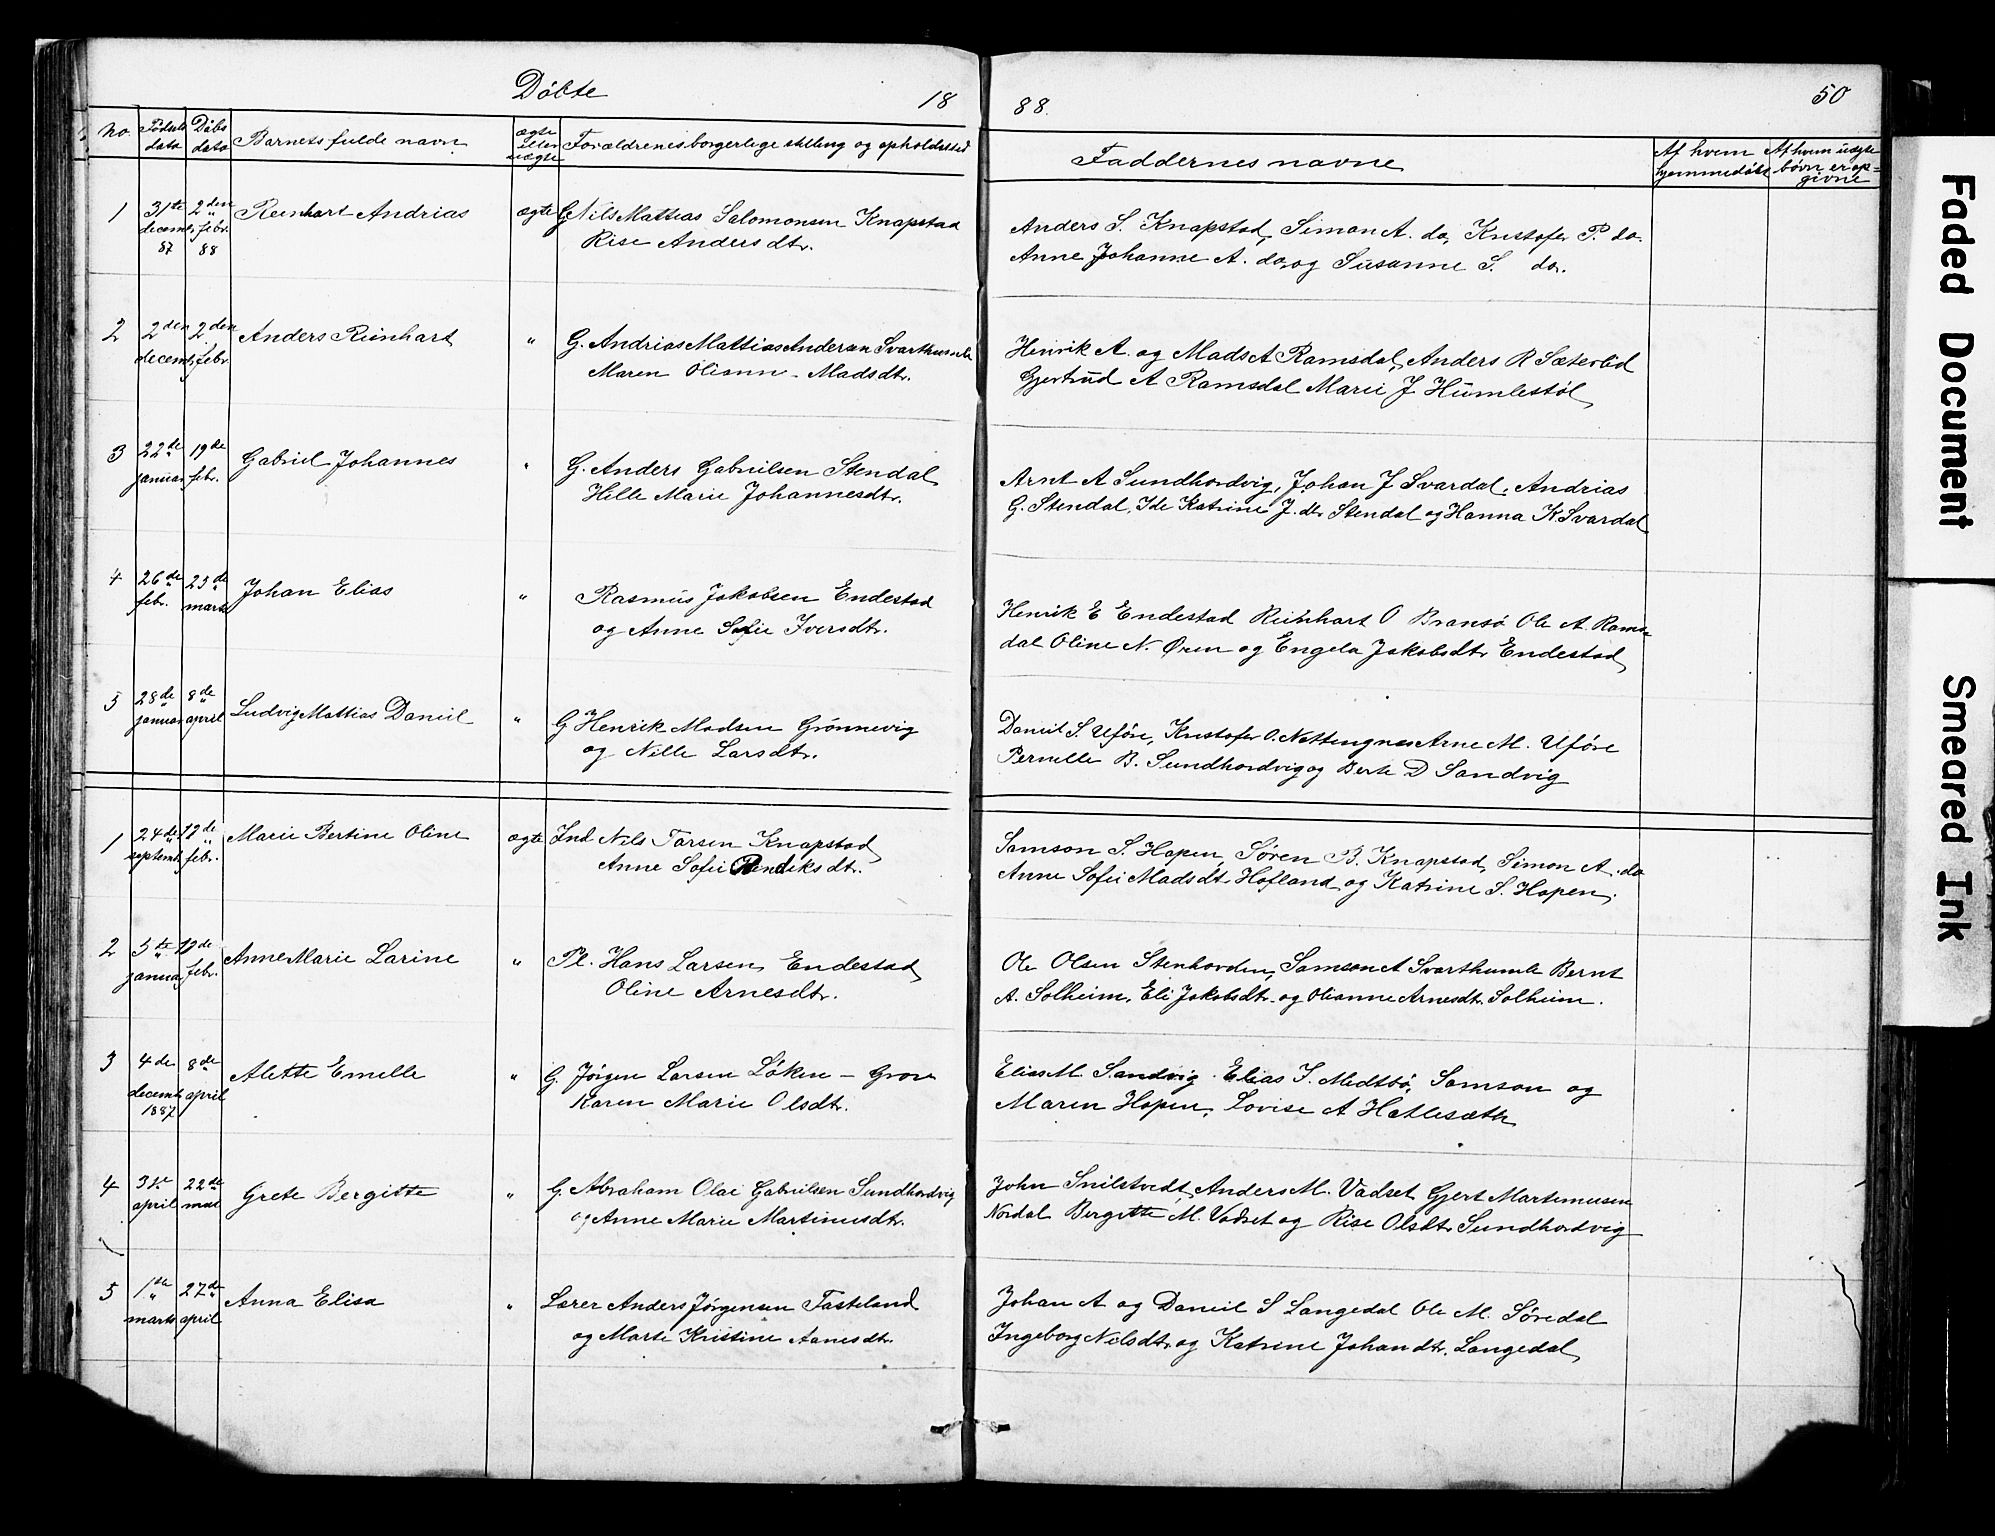 Döbte 18 88. 50
No. Fødsels dato Dåbs dato Barnets fulde navn ægte eller uægte Forældrenes borgerlige stilling og opholdssted Faddernes navne Af hvem hjemmedöbt Af hvem uægte børn er opgivne
1 31te decemb. 87 2den febr. 88 Reinhart Andrias ægte G Nils Mattias Salomonsen Knapstad
Rise Andersdtr.
Anders S. Knapstad, Simon A. do, Kristofer P. do.
Anne Johanne A. do, og Susanne S. do.
2 2den decemb. 2den febr. Anders Reinhart " G. Andrias Mattias Andersen Svarthumle
Maren Oliann Madsdtr.
Henrik A. og Mads A Ramsdal, Anders R Sæterlid
Gjertrud A Ramsdal Marie J Humlestøl
3 22de januar 19de febr. Gabriel Johannes " G. Anders Gabrielsen Stendal
Hille Marie Johannesdtr.
Arnt A Sundhordvig, Johan J Svardal, Andrias
G. Stendal, Ide Katrine J. dtr Stendal og Hanna K Svardal
4 26de febr. 25de marts Johan Elias " Rasmus Jakobsen Endestad
og Anne Sofie Iversdtr.
Henrik E Endestad Reinhart O Bransö Ole A. Rams-
dal Oline N. Øren og Engela Jakobsdtr Endestad
5 28de januar 8de april Ludvig Mattias Daniil " G Henrik Madsen Grönnevig
og Nille Larsdtr.
Daniil S. Uföre, Kristofer O. Nettingnes Arne M. Uföre
Pernelle B. Sundhordvig og Berte D Sandvig
1 24de septemb. 12de febr. Marie Bertine Oline ægte Ind Nils Torsen Knapstad
Anne Sofie Bendiksdtr.
Samson S. Hopen, Søren B. Knapstad, Simon A. do
Anne Sofie Madsdt. Hofland og Katrine S. Hopen.
2 5te januar 12de febr. Anne Marie Larine " Pl. Hans Larsen Endestad
Oline Arnesdtr.
Ole Olsen Stenhovden, Samson A Svarthumle Bernt
A. Solheim, Eli Jakobsdtr. og Olianne Arnesdtr. Solheim.
3 4de decemb 1887 8de april Alette Emelle " G. Jørgen Larsen Løken - Grov
Karen Marie Olsdtr.
Elias M. Sandvig. Elias I. Medtbö, Samson og
Maren Hopen, Lovise A Hatlesæth
4 3die april 22de mai Grete Bergitte " G. Abraham Olai Gabrielsen Sundhordvig
og Anne Marie Martinusdtr.
John Snilstvedt, Anders M. Vadset, Gjert Martinusen
Nordal Bergitte M. Vadset og Rise Olsdtr Sundhordvig
5 1ste marts 27de april Anna Elisa " Lærer Anders Jørgensen Fasteland
og Marte Kristine Aanesdtr.
Johan A og Daniil S Langedal Ole M. Söredal
Ingeborg Nilsdtr. og Katrine Johandtr. Langedal
Faded Document
Smeared Ink